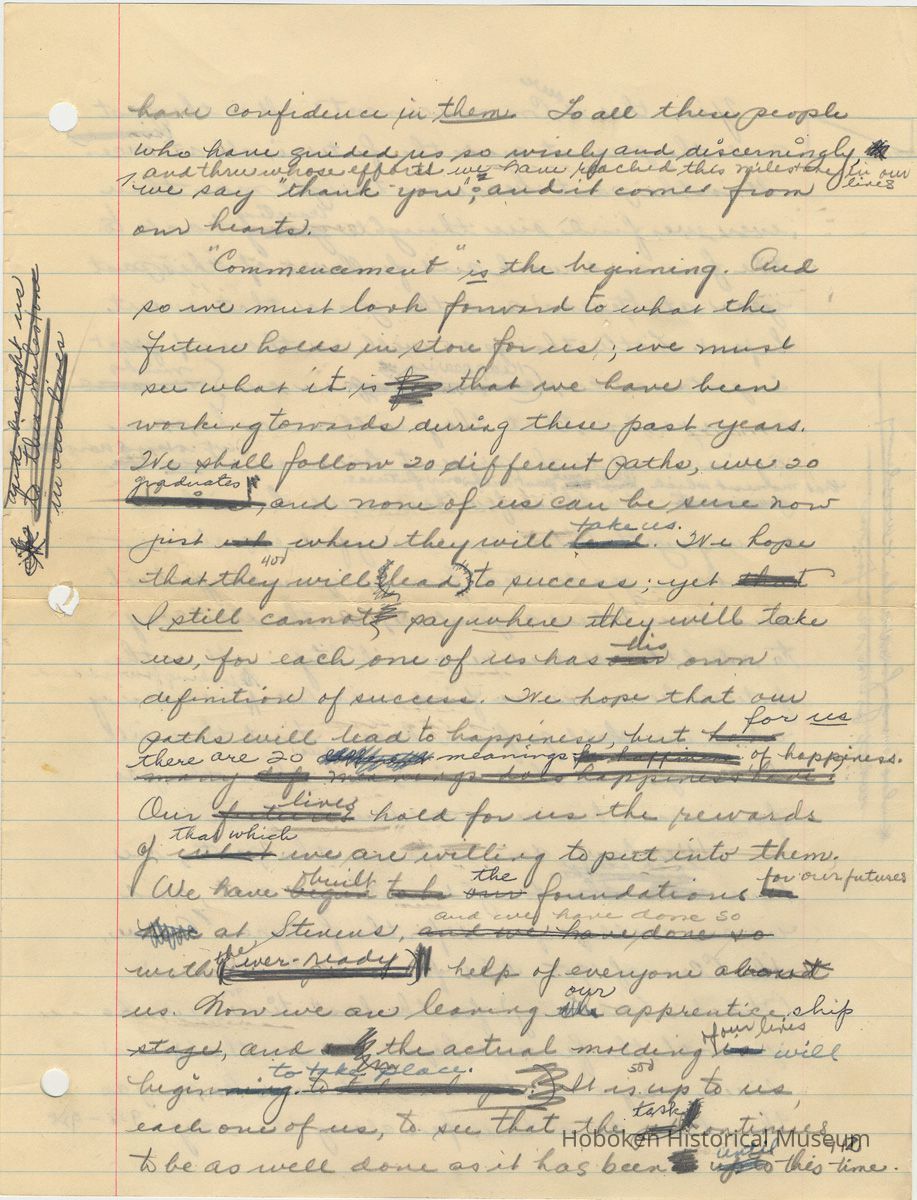 have confidence in them. To all these people
who have guided us so wisely and discerningly,
and thru whose efforts we have reached this milestone in our lives
we say "thank you"; and it comes from
our hearts.
"Commencement" is the beginning. And
so we must look forward to what the
future holds in store for us; we must
see what it is that we have been
working towards during these past years.
We shall follow 20 different paths, we 20
graduates, and none of us can be sure now
take us.
just where they will lead. We hope
400
that they will (lead) to success; yet that
I still cannot say where they will take
his
us, for each one of us has our own
definition of success. We hope that our
for us
paths will lead to happiness, but
there are 20 meanings of happiness.
many meanings does happiness have.
lives
Our future hold for us the rewards
that which
of what we are willing to put into them.
built the for our futures
We have begun to be our foundations
and we have done so
at Stevens, and we have done so
the
with (ever-ready) help of everyone about
our
us. Now we are leaving the apprentice ship
of our lives
stage, and the actual molding is will
to take place. 500
beginning to It is up to us,
task
each one of us, to see that the continues
until
to be as well done as it has been up to this time.
and brought us
to this milestone
in our lives
Hoboken Historical Museum